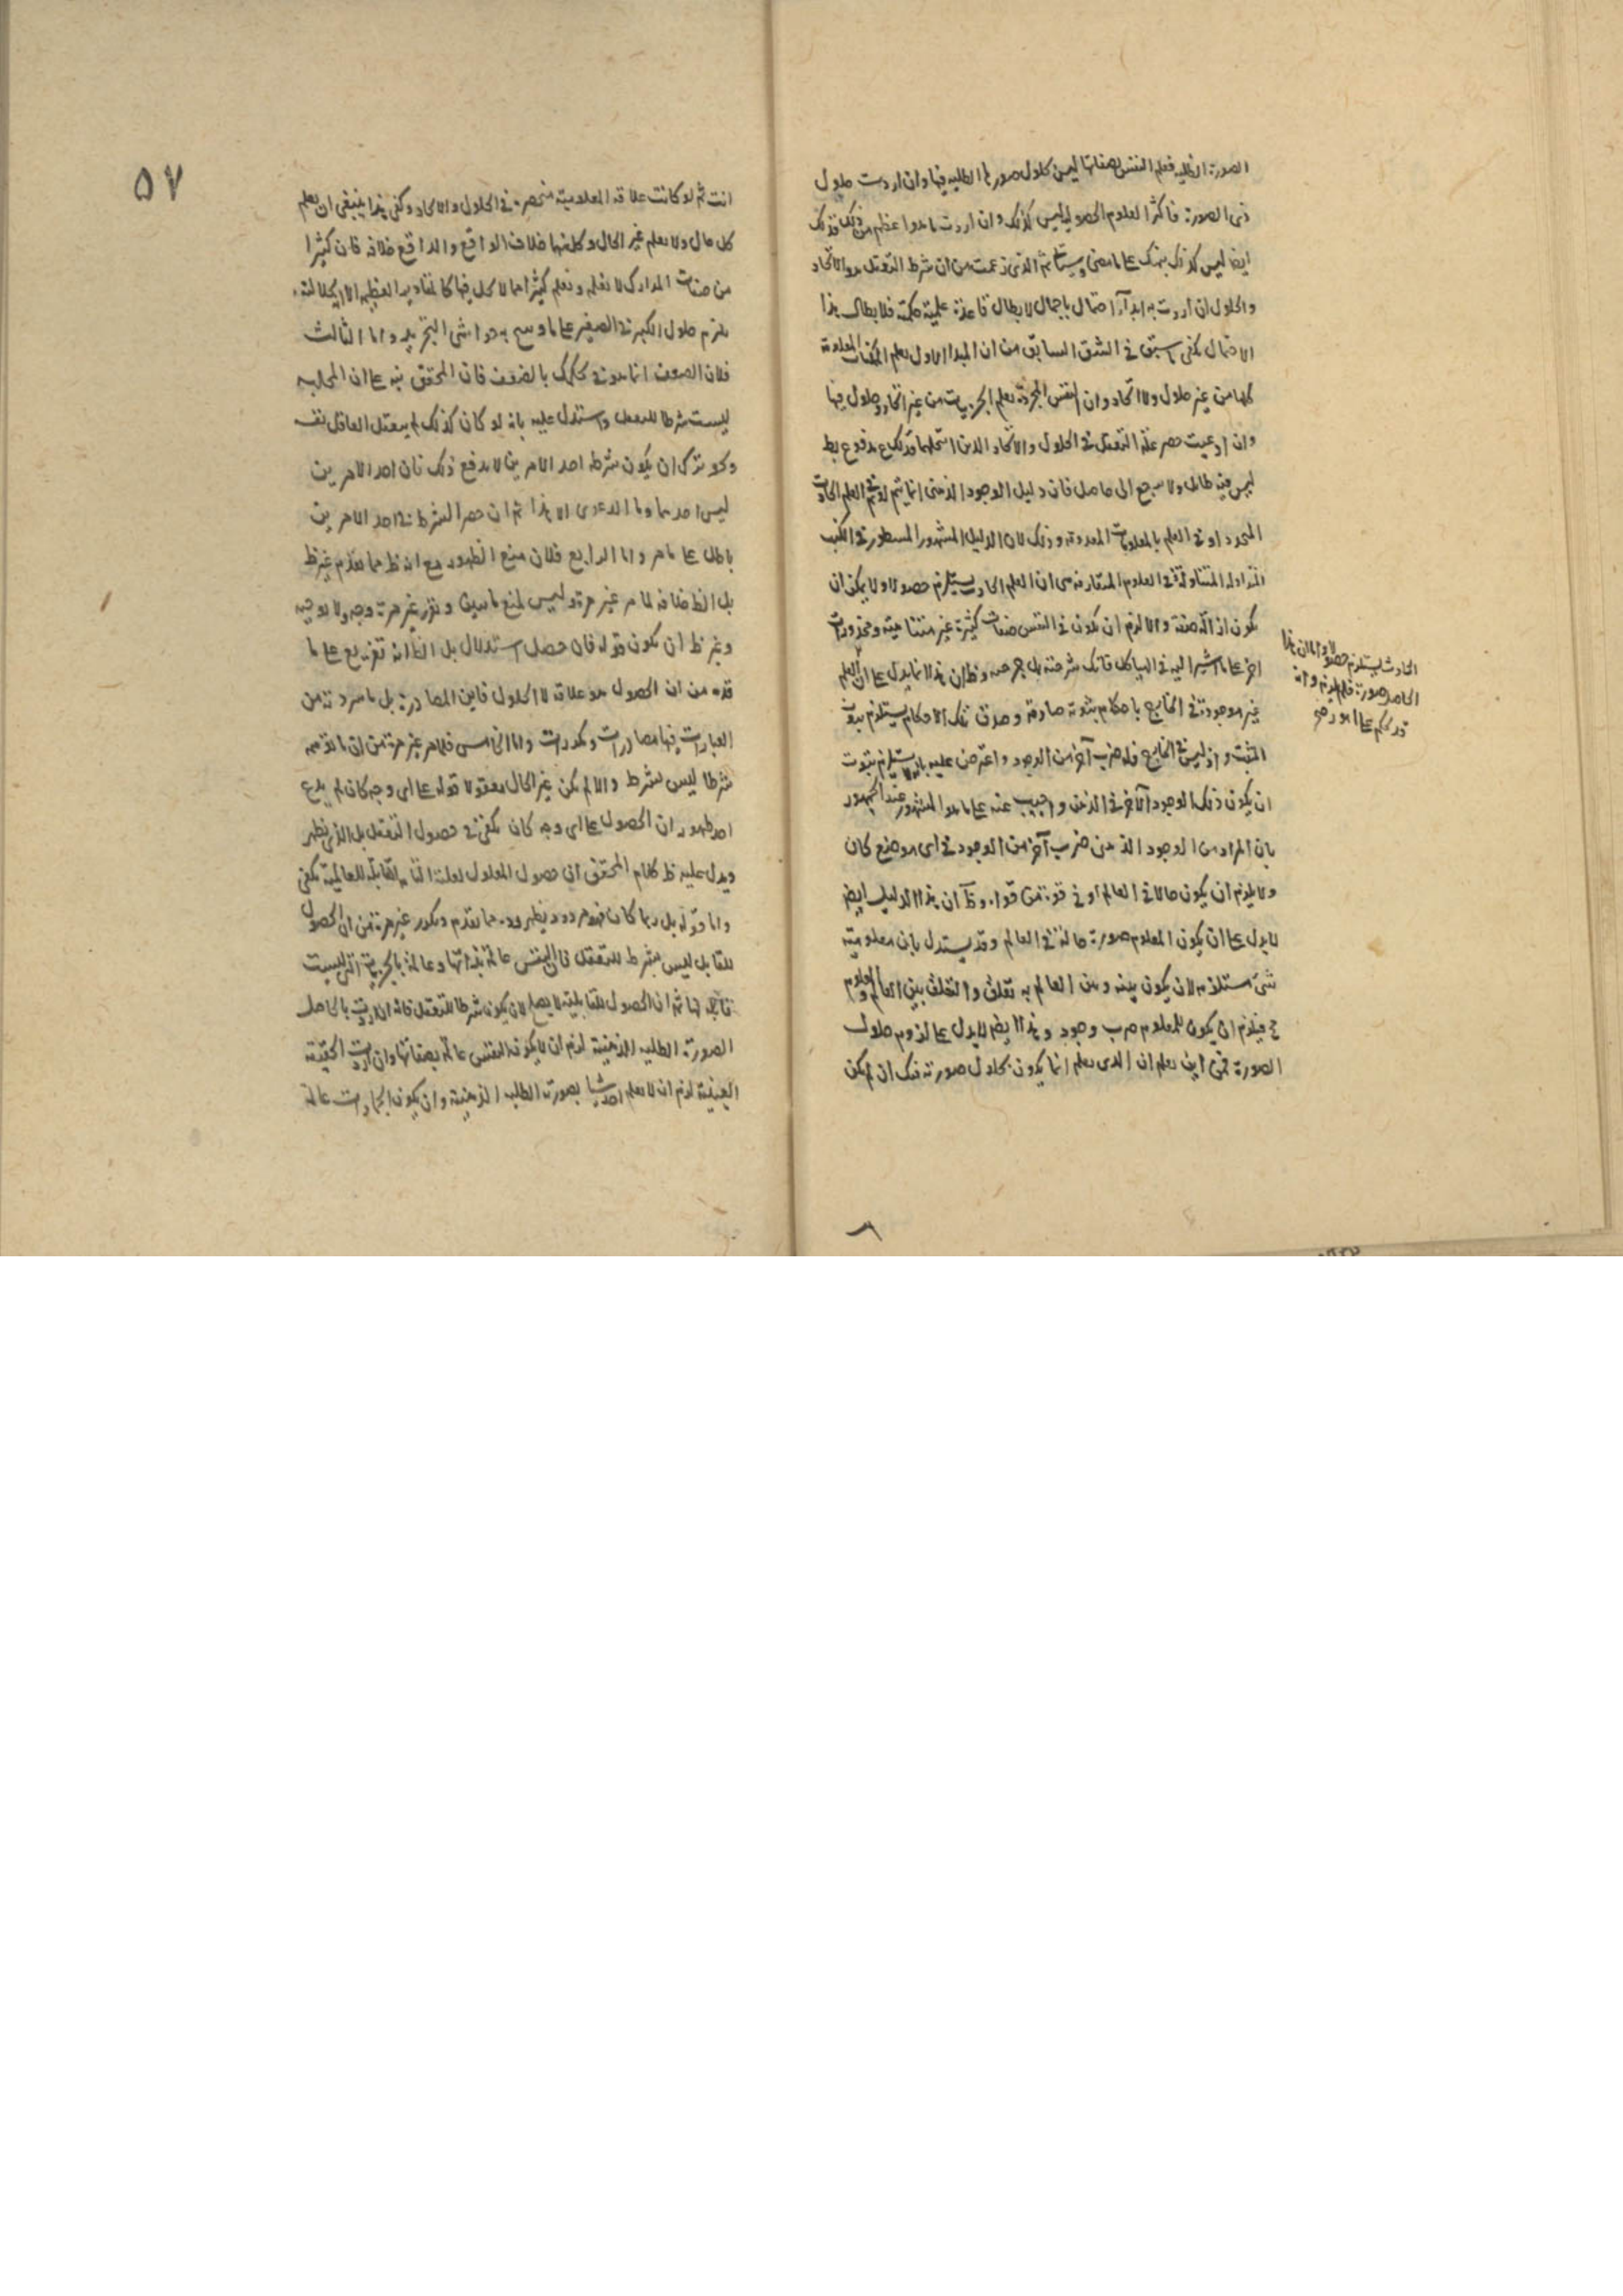 الصورة الظلية فعلم النفس بصفاتها ليس كحلول صورها الظلية فيها وان اردت حلول
ذى الصورة فاكثر العلوم الحصولية ليس كذلك وان اردت ما هوا عظم من ذلك فذلك
ايضا ليس كذلك على ما مضى ثم الذى زعمت من ان شرط التعقل هو الاتحاد
والحلول ان اردت به ابدآء احتمال باجمال لابطال قاعدة علمية حكمية فلابطال هذا
الاحتمال يكفى ما سبق فى الشق السابق من ان المبدا الاول يعلم الممكنات المعلومة
كلها من غير حلول ولا اتحاد وان النفس المجردة تعلم الجزئيات من غير اتحاد وحلول فيها
وان ادعيت حصر علاقة التعقل فى الحلول والاتحاد مدفوع
ليس فيه طائل ولا يرجع الى حاصل فان دليل الوجود الذهنى انما يتم لو تم فى العلم الحادث
المتجدد او فى العلم بالمعلومات المعدومة وذلك لان الدليل المشهور المسطور فى الكتب
المتداولة المتناولة فى العلوم المتعارفة هى ان العلم الحادث يستلزم حصولا ولا يمكن ان
يكون ازالة صفة والا لزم ان يكون فى النفس صفات كثيرة غير متناهية ومحذورات
اخر على ما اشير اليه فى الهياكل فانك شرحته بل جرحته وظ ان هذا لا يدل على ان العلم
غير موجودة فى الخارج باحكام ثبوتية صادقة وصدق تلك الاحكام يستلزم ثبوت
المثبت واذ ليس فى الخارج فله ضرب آخر من الوجود واعترض عليه بانه لا يستلزم ثبوت
ان يكون ذلك الوجود الآخر فى الذهن واجيب عنه على ما هو المشهور عند الجمهور
بان المراد من الوجود الذهنى ضرب آخر من الوجود فى اى موضع كان
ولا يلزم ان يكون حالا فى العالم او فى قوة من قواه وظ ان هذا الدليل ايضا
لا يدل على ان يكون المعلوم صورة حالة فى العالم وقد يستدل بان معلومية
شئ مستلزمة لان يكون بينه وبين العالم به تعلق والتعلق بين العالم والمعلوم
ح فيلزم ان يكون للمعلوم ضرب وجود وهذا ايضا لا يدل على لزوم حلول
الصورة فمن اين يعلم ان الذى يعلم انما يكون بحلول صورته فيك ان لم يكن
الحادث يستلزم حصولا واما ان هذا
الحاصل صورة فلم يلزم وانه
قد يحكم على امور
٥٧
انت ثم لو كانت علاقة المعلومية منحصرة فى الحلول والاتحاد وكفى هذا ينبغى ان يعلم
كل حال ولا يعلم غير الحال وكل منها خلاف الواقع والواقع خلافه فان كثيرا
من صفات المدارك لا نعلم ونعلم كثيرا مما لا يحل فيها كالمقادير العظيمة
يلزم حلول الكبير فى الصغير على ما وسح به حواشى التجريد واما الثالث
فلان المحقق نبه على ان
ليست شرطا للتعقل واستدل عليه بانه لو كان كذلك لم يتعقل العاقل نفسه
ان يكون شرطه احد الامرين لا يدفع ذلك فان احد الامرين
ليس احدهما وما الدعوى الا هذا ثم ان حصر الشرط فى احد الامرين
باطل على ما مر واما الرابع فلان منع الظهور مع انه ظ مما تقدم غير ظ
بل الظ خلافه لما مر غير مرة وليس لمنع ما سبق وتقرر غير مرة وجه ولا توجيه
وغير ظ ان يكون قوله فان حصل استدلال بل الظ انه تفريع على ما
قدمه من ان الحصول هو علاقة لا الحلول فاين المصادرة بل ما سردته من
العبارات فيها مصادرات ومكدرات واما الخامس فلما مر غير مرة من ان ما توهمه
شرطا ليس بشرط والا لم يكن غير الحال معقولا قوله على اى وجه كان لم يدع
احد ظهور ان الحصول على اى وجه كان يكفى فى حصول التعقل بل الذى يظهر
ويدل عليه ظ كلام المحقق ان حصول المعلول لعلته القابلة للعالمية يكفى
واما قوله بل ربما كان فهو مردود يظهر رده مما تقدم وتكرر غير مرة من ان الحصول
للقابل ليس بشرط للتعقل فان النفس عالمة بذاتها وعالمة بالجزئية التى ليست
قابلة لها ثم ان الحصول للقابلية لا يصلح لان يكون شرطا للتعقل فانه ان اردت بالحاصل
الصورة الظلية الذهنية لزم ان لا يكون النفس عالمة بصفاتها وان اردت الحقيقة
العينية لزم ان لا يعلم احد شيئا بصورته الظلية الذهنية وان يكون الجمادات عالمة